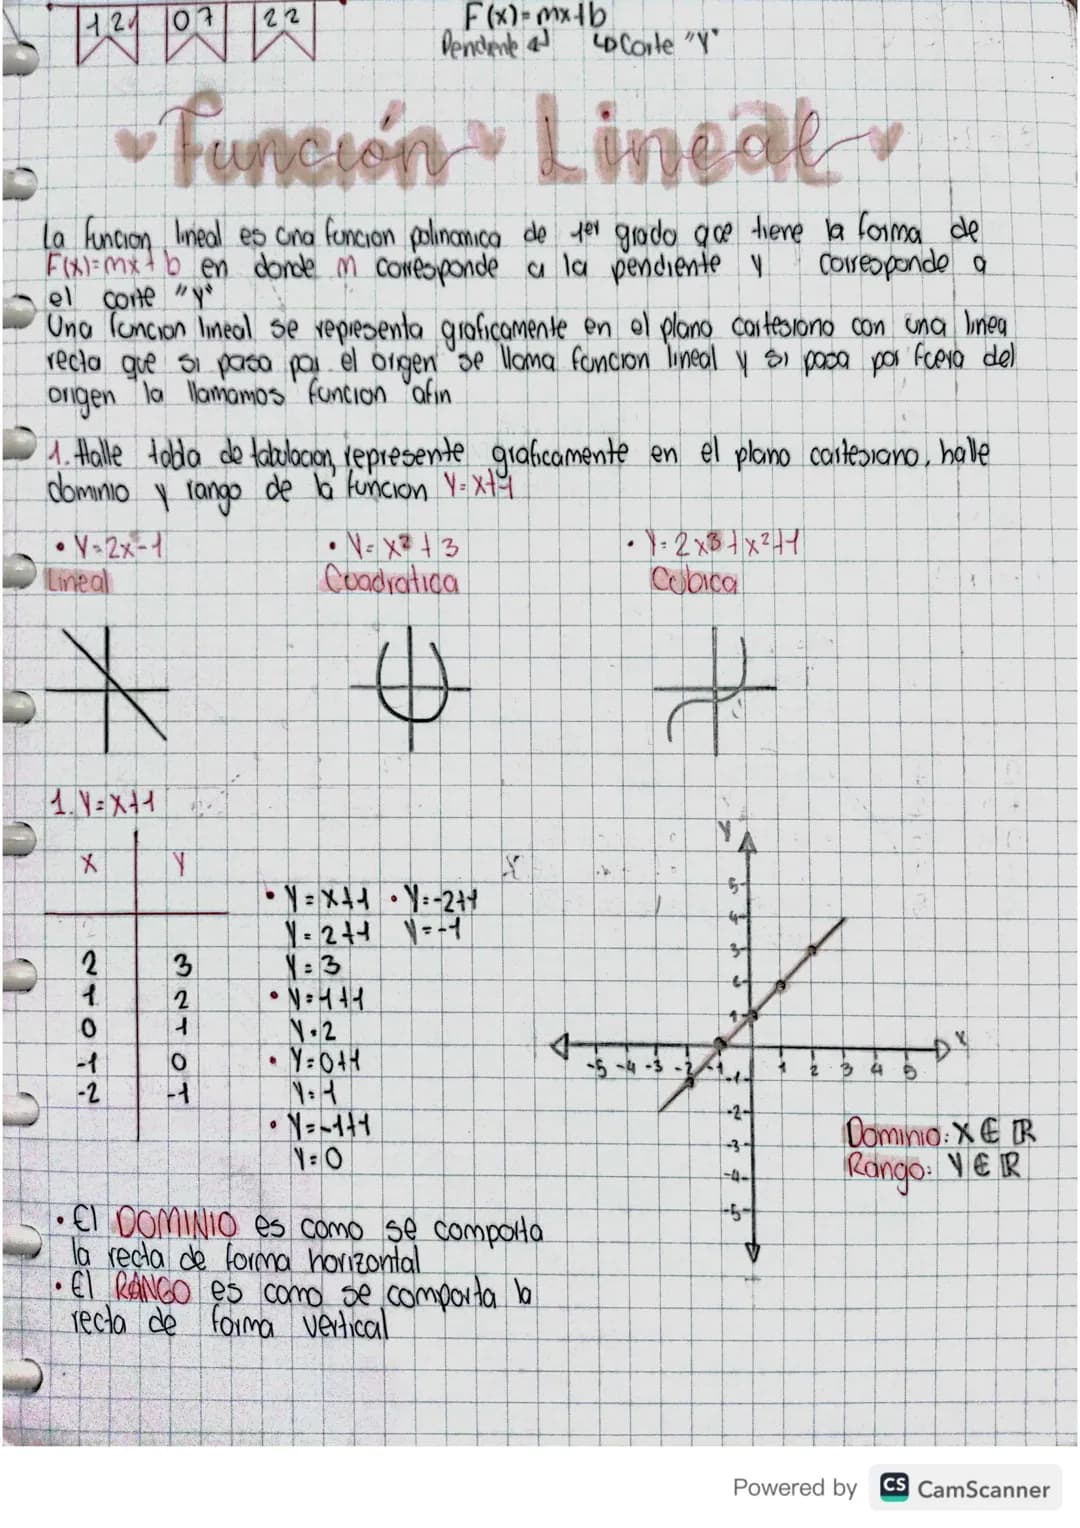 12 07 22
F(x)=mx+b
Pendiente Corte "Y"
Función Lineal
La funcion lineal es una funcion polinomica de 1er grado que tiene la forma de
F(x)=mx+b en donde m corresponde a la pendiente y corresponde a
el corte "y"
Una funcion lineal se representa graficamente en el plano cartesiano con una linea
recta que si pasa por el origen se llama funcion lineal y si pasa por fuera del
origen la llamamos funcion afin
1. Halle tabla de tabulacion, represente graficamente en el plano cartesiano, halle
dominio y rango de la funcion Y=x+1
• Y=2x-1 • Y=x²+3 • Y=2x³+x²+1
Lineal Cuadratica Cubica
1. Y=x+1
X Y
2 3
1 2
0 1
-1 0
-2 -1
• Y=x+1 • Y=-2+1
Y=2+1 Y=-1
Y=3
• Y=1+1
Y=2
• Y=0+1
Y=1
• Y=-1+1
Y=0
Y
5
4
3
2
1
X
-5 -4 -3 -2 -1 1 2 3 4 5
-1
-2
-3
-4
-5
Dominio: X ∈ ℝ
Rango: Y ∈ ℝ
• El DOMINIO es como se comporta
la recta de forma horizontal
• El RANGO es como se comporta la
recta de forma vertical
Powered by CS CamScanner